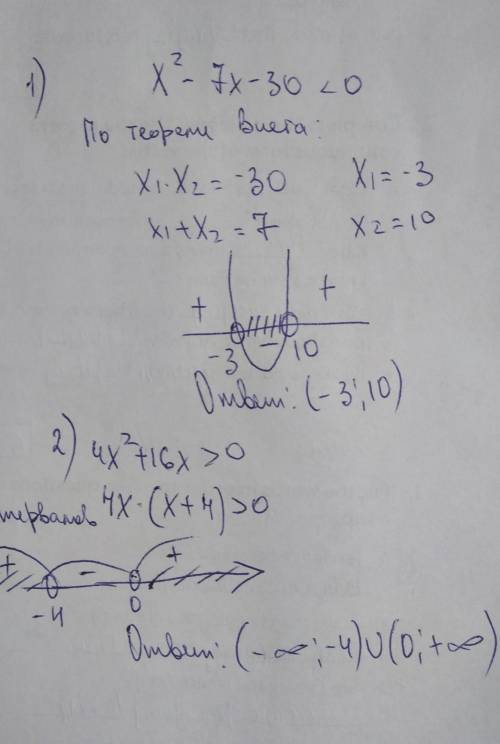 1) x² - 7x - 30 < 0
По теореме Виета:
x₁·x₂ = -30 x₁ = -3
x₁ + x₂ = 7 x₂ = 10
+ - +
-3 10
Ответ: (-3; 10)
2) 4x² + 16x > 0
тервалов 4x·(x+4) > 0
+ - +
-4 0
Ответ: (-∞; -4) ∪ (0; +∞)